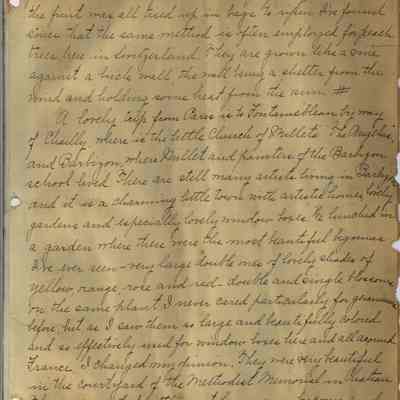 the fruit was all tied up in bags to ripen. I've found
since that the same method is often employed for peach
trees here in Switzerland. They are grown like a vine
against a brick wall the wall being a shelter from the
wind and holding some heat from the sun. #
A lovely trip from Paris is to Fontainebleau by way
of Chailly where is the little Church of Millets "The Angelus",
and Barbizon, where Millet and painters of the Barbizon
school lived. There are still many artists living in Barbizon
and it is a charming little town with artistic homes, lovely
gardens and especially lovely window boxes. We lunched in
a garden where there were the most beautiful begonias
I've ever seen - very large double ones of lovely shades of
yellow orange rose and red - double and single blossoms
on the same plant. I never cared particularly for geraniums
before, but as I saw them so large and beautifully colored
and so effectively used for window boxes here and all around
France, I changed my opinion. They were very beautiful
in the courtyard of the Methodist Memorial in Chateau